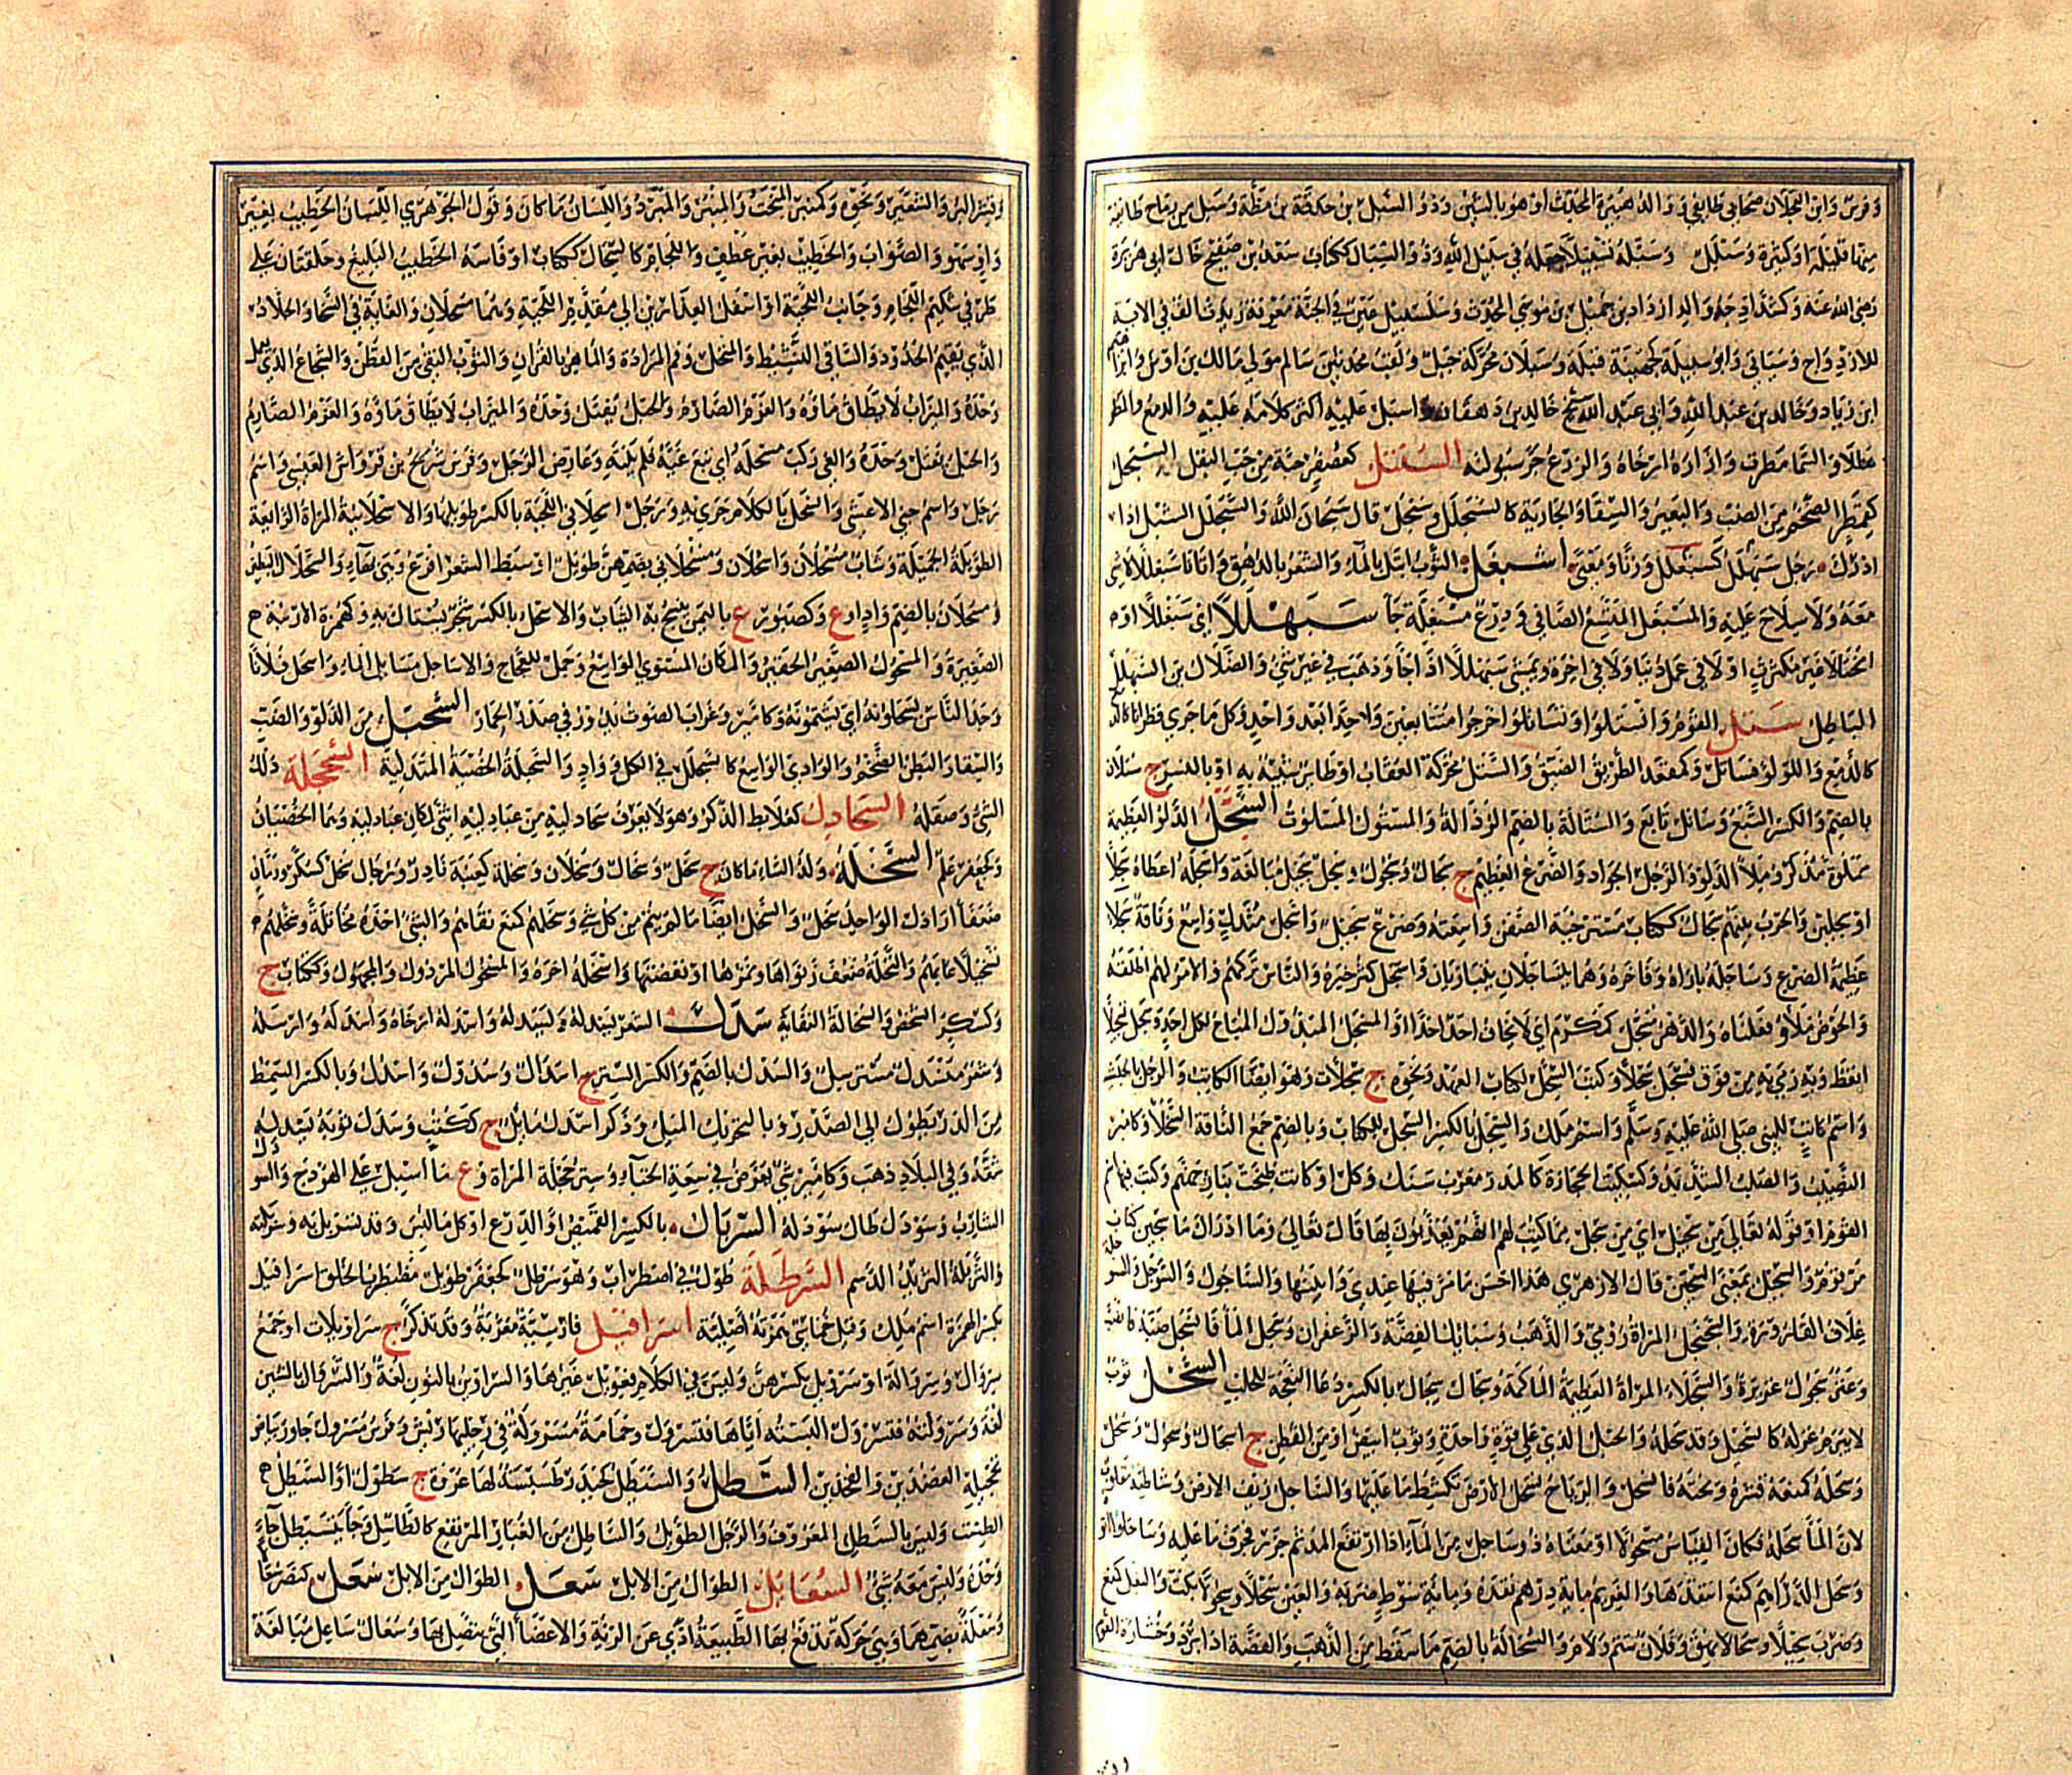 وفرس وابن العجلان صحابي طايفي ووالد هبيرة المحدث او هو بالشين وذو السبل بن حدقة بن مظة وسبل من رماح طايفة
منها قليلة او كثيرة وسنبل وسبله تسبيلا جعله في سبيل الله وذو السبال ككتاب سعد بن صفيح خال ابي هريرة
رضي الله عنه وكشداد جد والد ازداد بن جميل بن موسى المحدث وسلسبيل عين في الجنة معرفة زيدت الالف في الاية
للازدواج وسياتي وابو سبيلة كجهينة قبله وسبلان محركة جبل ولقب محدثين سالم مولى مالك بن اوس وابراهيم
ابن زياد وخالد بن عبد الله وابي عبد الله شيخ خالد بن دهقان اسبل عليه اكثر كلامه عليه والدمع والمطر
هطلا والسما مطرت وازاره ارخاه والزرع خرجت سبولته السبتل كعصفر حبة من حب البقل السبحل
كقمطر الضخم من الضب والبعير والسقاء والجارية كالسبحلل وسبحل قال سبحان الله والسبحلل الشبل اذا
ادرك رجل سبهلل كسبغلل وزنا ومعنى اسبغل الثوب ابتل بالماء والشعر بالدهن واتانا سبغللا لا شي
معه ولا سلاح عليه والمسبغل المتسع الضافي ودرع مسبغلة جا سبهللا اي سبغللا او
مختالا غير مكترث او لا في عمل دنيا ولا في اخرة ويمشي سبهللا اذا جا وذهب في غير شي والضلال بن السبهلل
الباطل ستل القوم وانستلوا وتساتلوا اخرجوا متتابعين واحدا بعد واحد وكل ما جرى قطرانا
كالدمع واللولو فساتل وكمقعد الطريق الضيق والستل محركة العقاب او طاير شبيه به او بالنسر ج ستلان
بالضم والكسر والتبع وساتل تابع والستالة بالضم الرذالة والمستول المسلوت السجل الدلو العظيمة
مملوة مذكر وملأ الدلو والرجل الجواد والضرع العظيم ج سجال وسجول وسجل سجيل مبالغة واسجله اعطاه سجلا
او سجلين والحرب بينهم سجال ككتاب مسترخية الصفن واسعته وضرع سجيل واسجل متدل واسع وناقة سجلا
عظيمة الضرع وساجله باراه وفاخره وهما يتساجلان يتباريان واسجل كثر خيره والناس تركهم والامر لهم اطلقه
والحوض ملاه وفعلناه والدهر مسجل كمكرم اي لا يخاف احد احدا والمسجل المبذول المباح لكل احد وسجل تسجيلا
انعظ وبه رمى به من فوق كسجل سجلا وكتب السجل لكتاب العهد ونحوه ج سجلات وهو ايضا الكاتب والرجل بالحبشية
واسم كاتب للنبي صلى الله عليه وسلم واسم ملك والسجل بالكسر السجل للكتاب وبالضم جمع الناقة السجلا وكامير
النصيب والصلب الشديد وكسكيت حجارة كالمدر معرب سنك وكل او كانت طبخت بنار جهنم وكتب فيها اسماء
القوم او قوله تعالى من سجيل اي من سجل مما كتب لهم انهم يعذبون بها قال تعالى وما ادراك ما سجين كتاب
مرقوم والسجيل بمعنى السجين قال الازهري هذا احسن ما مر فيها عندي واثبتها والساجول والسوجل والسوجلة
غلاف القارورة والسجنجل المراة رومي والذهب وسبائك الفضة والزعفران وسجل الماء فانسجل صبه فانصب
وعنز سجول غزيرة والسجلاء المراة العظيمة الماكمة وسجال سجال بالكسر دعا النعجة للحلب السحل ثوب
لا يبرم غزله كالسحيل وقد سحله والحبل الذي على قوة واحدة وثوب ابيض او من القطن ج اسحال وسحول وسحل
وسحله كمنعه قشره ونحته فانسحل والرياح تسحل الارض تكشط ما عليها والساحل ريف الارض وشاطئه مقلوب
لان الماء سحله فكان القياس مسحولا او معناه ذو ساحل من الماء اذا ارتفع المد ثم جزر فجرف ما عليه وساحلوا اتوه
وسحل الدراهم كمنع انتقدها والغريم ماية درهم نقده وماية سوط ضربه والعين سحلا وسحولا بكت والبغل كمنع
وضرب سحيلا وسحالا نهق وفلان شتم ولام والسحالة بالضم ما سقط من الذهب والفضة اذا برد وخشارة القوم
وقشر البر والشعير ونحوه وكمنبر النحت والمنحت والمبرد واللسان ما كان وقول الجوهري اللسان الخطيب بغير
واو سهو والصواب والخطيب بغير عطف واللجام كالسحال ككتاب او فاسه الخطيب البليغ وحلقتان على
طرفي شكيم اللجام وجانب اللحية او اسفل العذارين الى مقدم اللحية وهما مسحلان والغاية في السخا والجلاد
الذي يقيم الحدود والساقي النشيط والمنخل وفم المزادة والماهر بالقران والثوب النقي من القطن والشجاع الذي يعمل
وحده والميزاب لا يطاق ماؤه والعزم الصارم والحبل يفتل وحده والميزاب لا يطاق ماؤه والعزم الصارم
والحبل يفتل وحده والغي وركب مسحله اي تبع غيه فلم ينته وعارض الرجل وفرس شريح بن قرواش العبسي واسم
رجل واسم جني الاعشى وانسحل بالكلام جرى به ورجل اسحلاني اللحية بالكسر طويلها والاسحلانية المراة الرائعة
الطويلة الجميلة وشاب مسحلان واسحلان ومسحلاني بضمهن طويل او سبط الشعر افرع وهي بهاء والسحلال البطين
ومسحلان بالضم واد او ع وكصبور ع باليمن ينسج به الثياب والاسحل بالكسر شجر يستاك به وكهمزة الارنبة
الصغيرة والمسحول الصغير الحقير والمكان المستوي الواسع وجمل للعجاج والاساحل مسايل الماء واسحل فلانا
وجد الناس يسحلونه اي يشتمونه وكامير وغراب الصوت يدور في صدر الحمار السحبل من الدلو والضب
والسقا والبطن الضخم والوادي الواسع كالسبحلل في الكل وواد والسحبلة الخصية المتدلية السحجلة دلك
الشي وصقله السحادل كعلابط الذكر وهو لا يعرف سحادليه من عنادليه انثى لمكان عنادليه وهما الخصيتان
وكجعفر علم السخلة ولد الشاء ما كان ج سخل وسخال وسخلان وسخلة كعنبة نادر ورجال سخل كسكر ورمان
ضعفا ارذال الواحد سخل والسخل ايضا ما لم يتمم من كل شي وسخلهم كمنع نفاهم والشي اخذه مخاتلة وسخلهم
تسخيلا عابهم والنخلة ضعف نواها وتمرها او نفضتها واسخله اخره والمسخول المرذول والمجهول وككتاب ع
وكسكر الشخص والسخالة النفاية سدل الشعر يسدله ويسدله واسدله ارخاه واسدله وارسله
وشعر منسدل مسترسل والسدل بالضم والكسر الستر ج اسدال وسدول واسدل وبالكسر السمط
من الدر يطول الى الصدر وبالتحريك الميل وذكر اسدل مايل ج ككتب وسدل ثوبه يسدله
شقه وفي البلاد ذهب وكامير شي يعرض في سعة الخباء وستر حجلة المراة وع ما اسبل على الهودج والسودل
الشارب وسودل طال سودله السربال بالكسر القميص او الدرع او كل ما لبس وقد تسربل به وسربلته
والسربلة الثريد الدسم السرطلة طول في اضطراب وهو سرطل كجعفر طويل مضطرب الخلق اسرافيل
بكسر الهمزة اسم ملك وقيل خماسي همزته اصلية اسرافيل فارسية معربة وقد تذكر ج سراويلات او جمع
سروال وسروالة او سرويل بكسرهن وليس في الكلام فعويل غيرها والسراوين بالنون لغة والشروال بالشين
لغة وسرولته فتسرول البسته اياها فتسرول وحمامة مسرولة في رجليها ريش وفرس مسرول جاوز بياض
تحجيله العضدين والفخذين السطل والسيطل كحيدر طسيسة لها عروة ج سطول او السيطل
الطست وليس بالسطل المعروف والرجل الطويل والساطل من الغبار المرتفع كالطاسل وجا يتسيطل جاء
وحده وليس معه شي السعابل الطوال من الابل سعل الطوال من الابل سعل كنصر سعالا
وسعلة بضمهما وهي حركة تدفع بها الطبيعة اذى عن الرئة والاعضا التي تتصل بها وسعال ساعل مبالغة